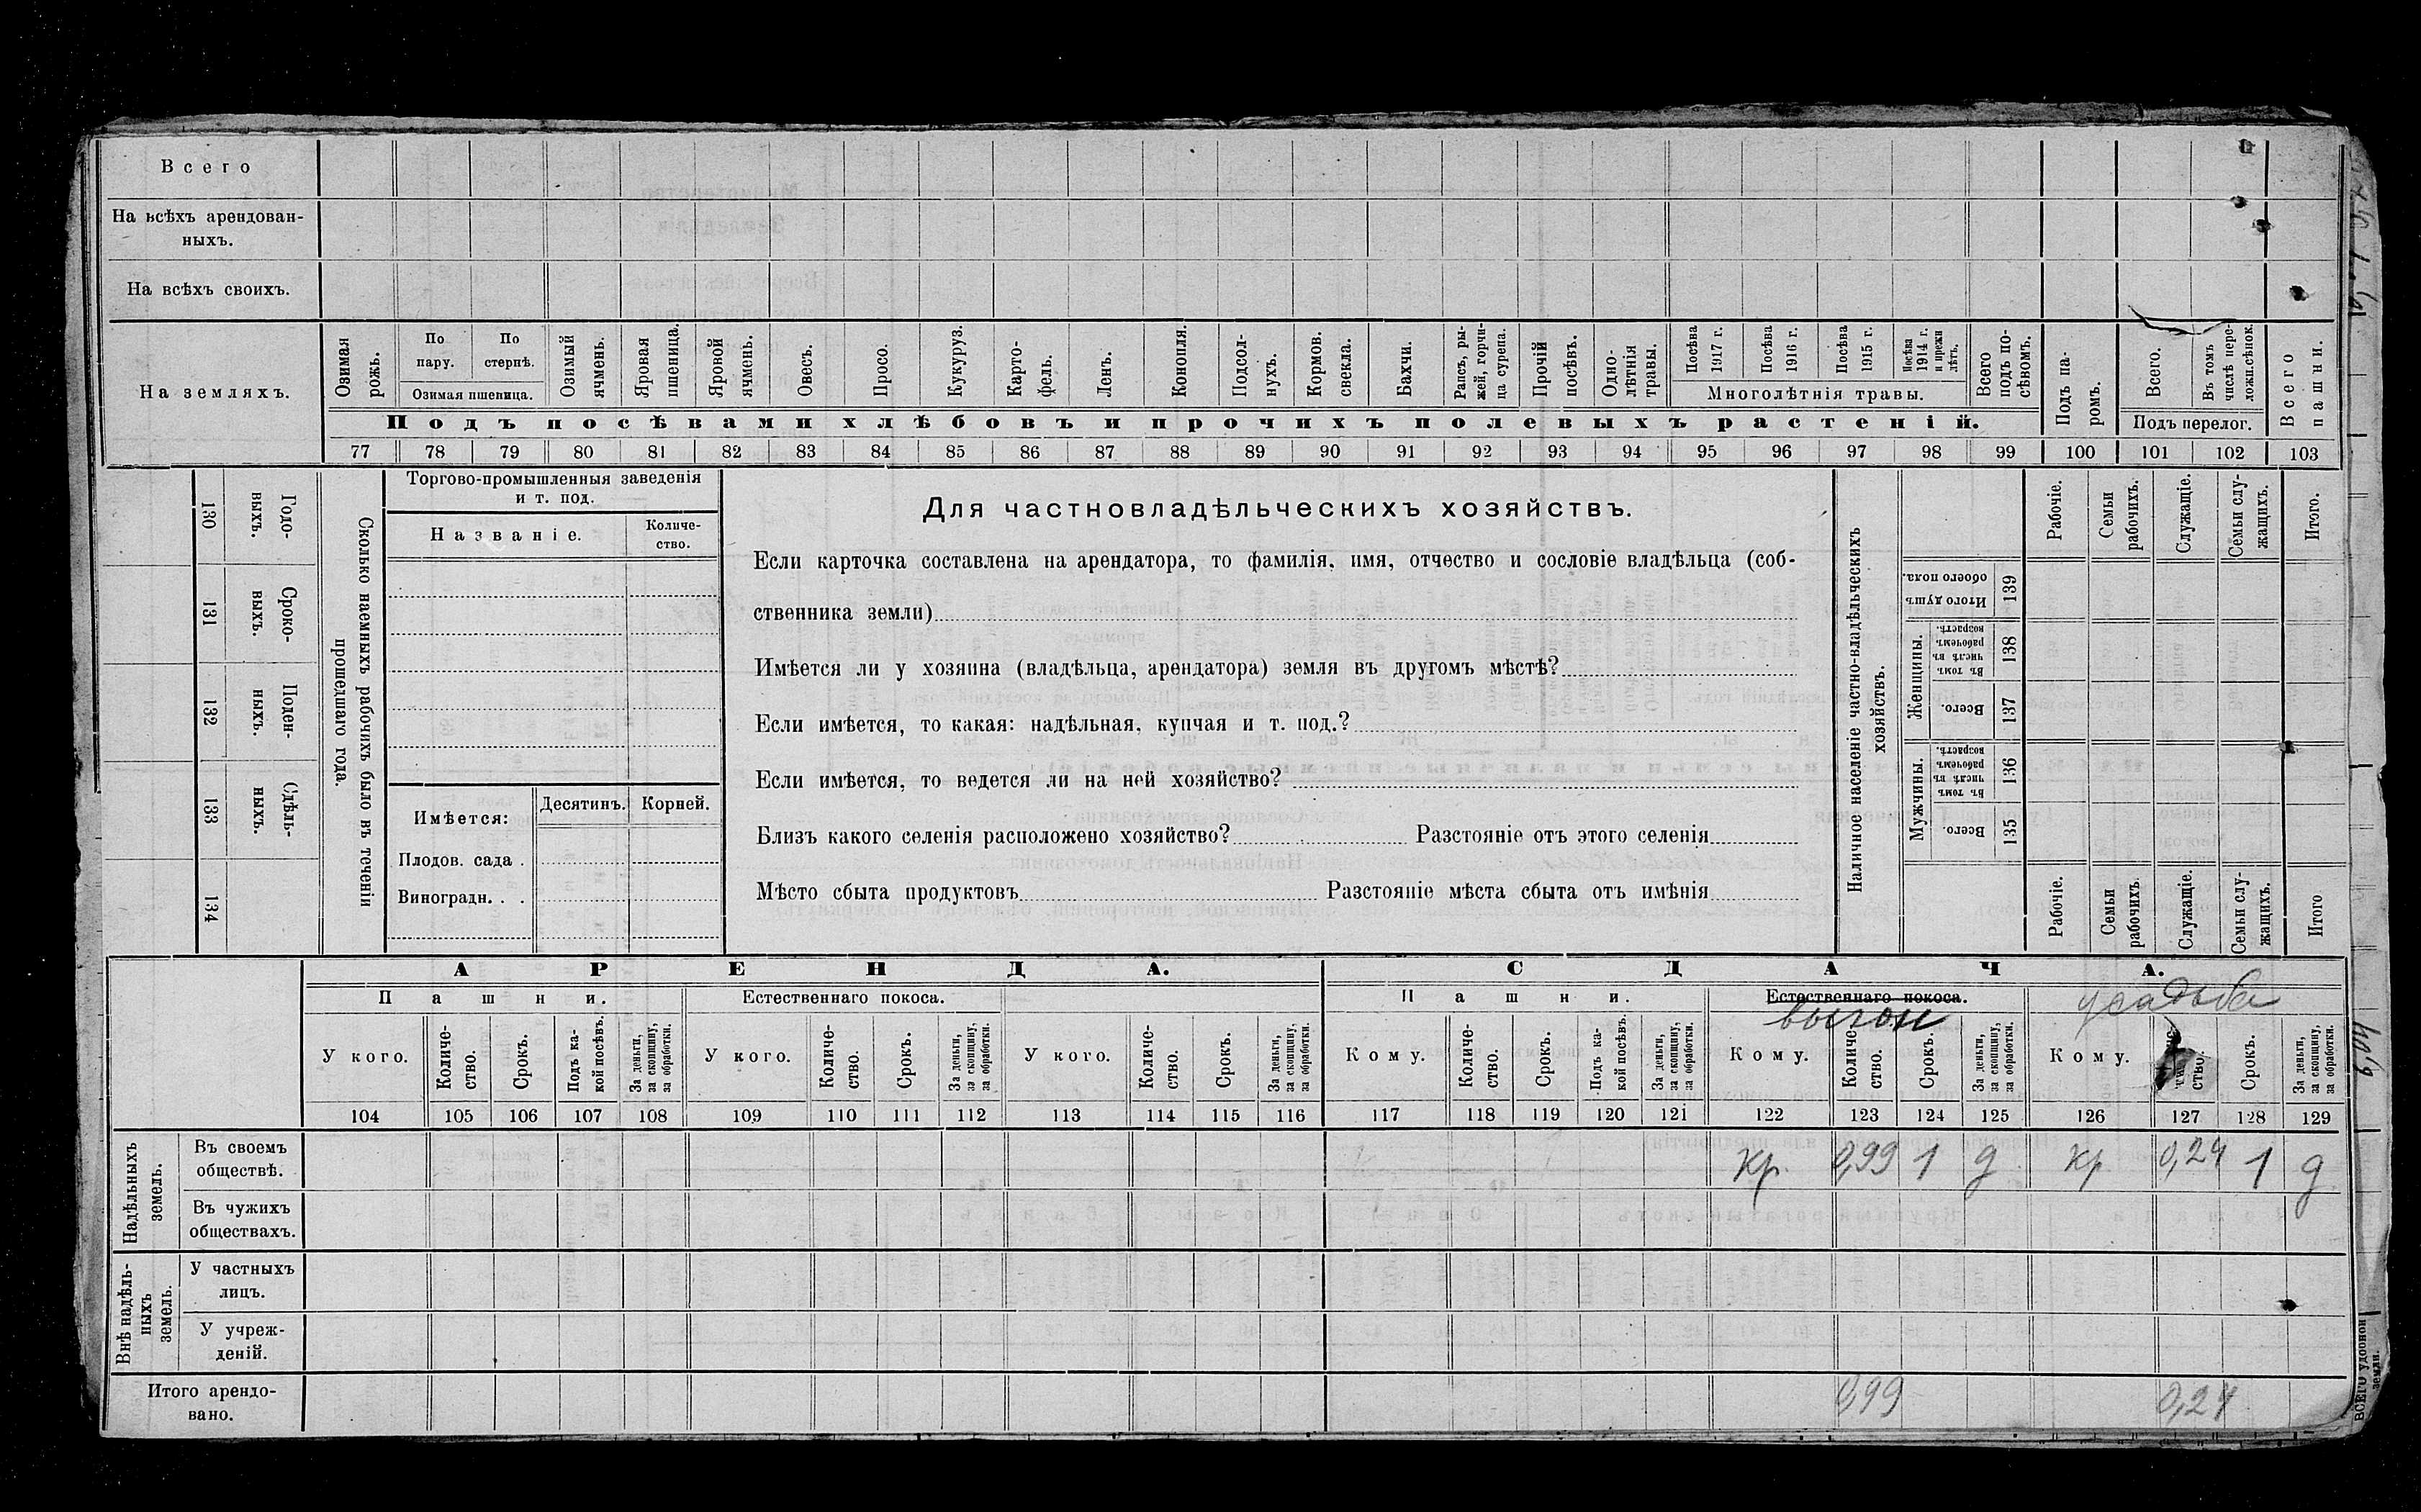 Всего
На всѣхъ арендован-
ныхъ.
На всѣхъ своихъ.
На земляхъ.
Озимая рожь.
По пару.
По стернѣ.
Озимая пшеница.
Озимый ячмень.
Яровая пшеница.
Яровой ячмень.
Овесъ.
Просо.
Кукуруз.
Карто-
фель.
Ленъ.
Конопля.
Подсол-
нухъ.
Кормов. свекла.
Бахчи.
Рапсъ, ры-
жей, горчи-
ца сурепа.
Прочій посѣвъ.
Одно-
лѣтнія травы.
Посѣва 1917 г.
Посѣва 1916 г.
Посѣва 1915 г.
Посѣва 1914 г. и прежн лѣтъ.
Многолѣтнія травы.
Всего подъ по-
сѣвомъ.
Подъ па-
ромъ.
Всего.
Въ томъ числѣ пере-
ложн.сѣнок.
Подъ перелог.
Всего пашни.
Подъ посѣвами хлѣбовъ и прочихъ полевыхъ растеній.
77 78 79 80 81 82 83 84 85 86 87 88 89 90 91 92 93 94 95 96 97 98 99 100 101 102 103
130 Годо-
выхъ.
131 Сроко-
выхъ.
132 Поден-
ныхъ.
133 Сдѣль-
ныхъ.
134
Сколько наемныхъ рабочихъ было въ теченіи
прошедшаго года.
Торгово-промышленныя заведенія
и т. под.
Названіе.
Количе-
ство.
Имѣется:
Десятинъ.
Корней.
Плодов. сада .
Виноградн. . .
Для частновладѣльческихъ хозяйствъ.
Если карточка составлена на арендатора, то фамилія, имя, отчество и сословіе владѣльца (соб-
ственника земли)
Имѣется ли у хозяина (владѣльца, арендатора) земля въ другомъ мѣстѣ?
Если имѣется, то какая: надѣльная, купчая и т. под.?
Если имѣется, то ведется ли на ней хозяйство?
Близъ какого селенія расположено хозяйство? Разстояніе отъ этого селенія
Мѣсто сбыта продуктовъ Разстояніе мѣста сбыта отъ имѣнія
Наличное населеніе частно-владѣльческихъ
хозяйствъ.
Рабочіе.
Семьи рабочихъ.
Служащіе.
Семьи слу-
жащихъ.
Итого.
Итого душъ обоего пола.
139
Женщины.
Въ томъ числѣ въ рабочемъ возрастѣ.
138
Всего.
137
Мужчины.
Въ томъ числѣ въ рабочемъ возрастѣ.
136
Всего.
135
Рабочіе.
Семьи рабочихъ.
Служащіе.
Семьи слу-
жащихъ.
Итого
АРЕНДА.
СДАЧА.
Пашни.
Естественнаго покоса.
Пашни.
Естественнаго покоса.
выгон
усадьба
У кого.
Количе-
ство.
Срокъ.
Подъ ка-
кой посѣвъ.
За деньги, за скопщину, за обработки.
У кого.
Количе-
ство.
Срокъ.
За деньги, за скопщину, за обработки.
У кого.
Количе-
ство.
Срокъ.
За деньги, за скопщину, за обработки.
Кому.
Количе-
ство.
Срокъ.
Подъ ка-
кой посѣвъ.
За деньги, за скопщину, за обработки.
Кому.
Количе-
ство.
Срокъ.
За деньги, за скопщину, за обработки.
Кому.
ство.
Срокъ.
За деньги, за скопщину, за обработки.
104 105 106 107 108 109 110 111 112 113 114 115 116 117 118 119 120 121 122 123 124 125 126 127 128 129
Надѣльныхъ земель.
Въ своемъ
обществѣ.
кр. 0,99 1 д кр 0,24 1 д
Въ чужихъ
обществахъ.
Внѣ надѣль-
ныхъ земель.
У частныхъ
лицъ.
У учреж-
деній.
Итого арендо-
вано.
0,99 0,24
ВСЕГО удобной
земли.